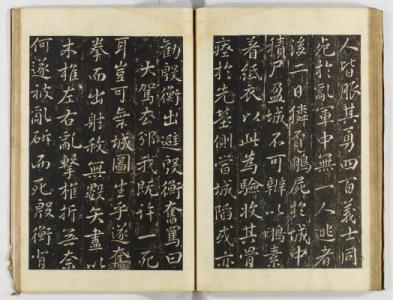 人皆服其勇四百義士同
死於亂軍中無一人逃者
後二日獜覓鵬屍於城中
積尸盈城不可辨以鵬素
着紙衣以此為驗收其骨
瘞於先塋側當城陷或亦
勸殷衡出避殷衡奮罵曰
大駕我既許一死
耳豈可棄城圖生乎遂奮
拳而出射敵無數矢盡以
木椎左右亂擊椎折奈
何遂被亂斫而死殷衡背